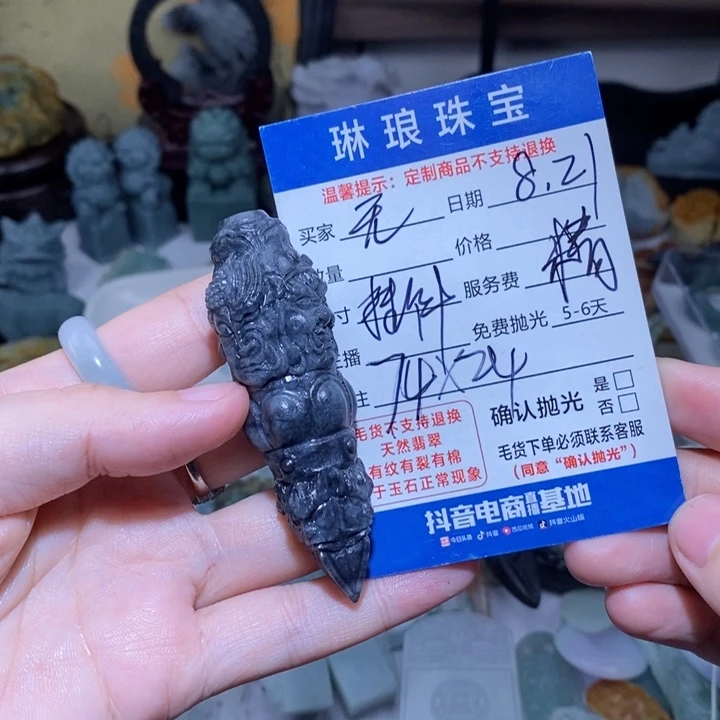 琳琅珠宝
温馨提示：定制商品不支持退换
买家 无 日期 8.21
数量 价格
寸 挂件 服务费
播 免费抛光 5-6天
注 74×24
确认抛光 是□ 否□
毛货不支持退换
天然翡翠
有纹有裂有棉
于玉石正常现象
毛货下单必须联系客服
(同意“确认抛光”)
抖音电商直播基地
今日头条 抖音 西瓜视频 抖音火山版